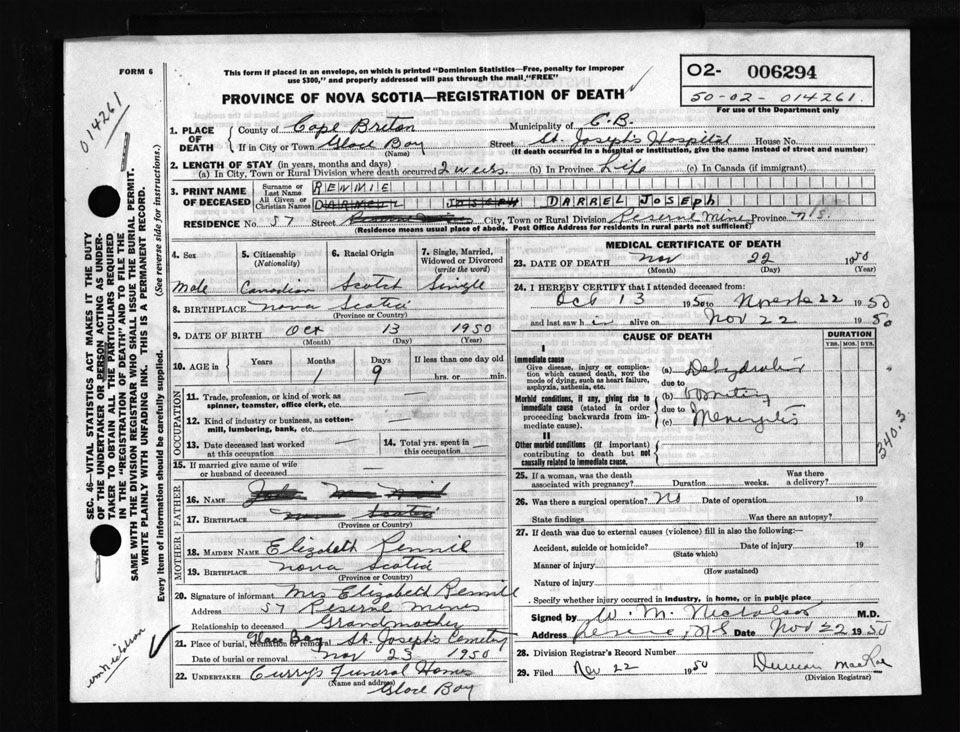 FORM 6
This form if placed in an envelope, on which is printed "Dominion Statistics—Free, penalty for improper
use $300," and properly addressed will pass through the mail, "FREE"
PROVINCE OF NOVA SCOTIA—REGISTRATION OF DEATH
02- 006294
50-02-014261
For use of the Department only
014261
1. PLACE OF DEATH
County of Cape Breton Municipality of C.B.
If in City or Town Glace Bay Street St. Joseph's Hospital House No.
(Name) (If death occurred in a hospital or institution, give the name instead of street and number)
2. LENGTH OF STAY (in years, months and days)
(a) In City, Town or Rural Division where death occurred 2 weeks. (b) In Province Life (c) In Canada (if immigrant)
3. PRINT NAME OF DECEASED
Surname or Last Name RENNIE
All Given or Christian Names DARRELL JOSEPH DARREL JOSEPH
RESIDENCE No. 57 Street City, Town or Rural Division Reserve Mines Province N.S.
(Residence means usual place of abode. Post Office Address for residents in rural parts not sufficient)
4. Sex
Male
5. Citizenship (Nationality)
Canadian
6. Racial Origin
Scotch
7. Single, Married, Widowed or Divorced (write the word)
Single
8. BIRTHPLACE Nova Scotia
(Province or Country)
9. DATE OF BIRTH Oct 13 1950
(Month) (Day) (Year)
10. AGE in
Years Months Days If less than one day old
1 9 hrs. or min.
OCCUPATION
11. Trade, profession, or kind of work as
spinner, teamster, office clerk, etc.
12. Kind of industry or business, as cotton-
mill, lumbering, bank, etc.
13. Date deceased last worked
at this occupation
14. Total yrs. spent in
this occupation
15. If married give name of wife
or husband of deceased
FATHER
16. NAME
17. BIRTHPLACE Nova Scotia
(Province or Country)
MOTHER
18. MAIDEN NAME Elizabeth Rennie
19. BIRTHPLACE Nova Scotia
(Province or Country)
20. Signature of informant Mrs Elizabeth Rennie
Address 57 Reserve Mines
Relationship to deceased Grandmother
21. Place of burial, cremation or removal Glace Bay St. Joseph's Cemetery
Date of burial or removal Nov 23 1950
22. UNDERTAKER Curry's Funeral Home
(Name and address)
Glace Bay
MEDICAL CERTIFICATE OF DEATH
23. DATE OF DEATH Nov 22 1950
(Month) (Day) (Year)
24. I HEREBY CERTIFY that I attended deceased from:
Oct 13 1950 to Nov 22 1950
and last saw him alive on Nov 22 1950
CAUSE OF DEATH
DURATION
YRS. MOS. DYS.
I
Immediate cause
Give disease, injury or complica-
tion which caused death, not the
mode of dying, such as heart failure,
asphyxia, asthenia, etc.
(a) Dehydration
due to
Morbid conditions, if any, giving rise to
immediate cause (stated in order
proceeding backwards from im-
mediate cause).
(b) Vomiting
due to
(c) Meningitis
340.3
II
Other morbid conditions (if important)
contributing to death but not
causally related to immediate cause.
25. If a woman, was the death
associated with pregnancy? Duration weeks. Was there
a delivery?
26. Was there a surgical operation? No Date of operation 19
State findings Was there an autopsy?
27. If death was due to external causes (violence) fill in also the following:
Accident, suicide or homicide? Date of injury 19
(State which)
Manner of injury
(How sustained)
Nature of injury
Specify whether injury occurred in industry, in home, or in public place
Signed by W. M. Nicholson M.D.
Address Reserve, N.S Date Nov 22 1950
28. Division Registrar's Record Number
29. Filed Nov 22 1950 Duncan MacRae
(Division Registrar)
SEC. 46—VITAL STATISTICS ACT MAKES IT THE DUTY
OF THE UNDERTAKER OR PERSON ACTING AS UNDER-
TAKER TO OBTAIN ALL THE PARTICULARS REQUIRED
IN THE "REGISTRATION OF DEATH" AND TO FILE THE
SAME WITH THE DIVISION REGISTRAR WHO SHALL ISSUE THE BURIAL PERMIT.
WRITE PLAINLY WITH UNFADING INK. THIS IS A PERMANENT RECORD.
Every item of information should be carefully supplied. (See reverse side for instructions.)